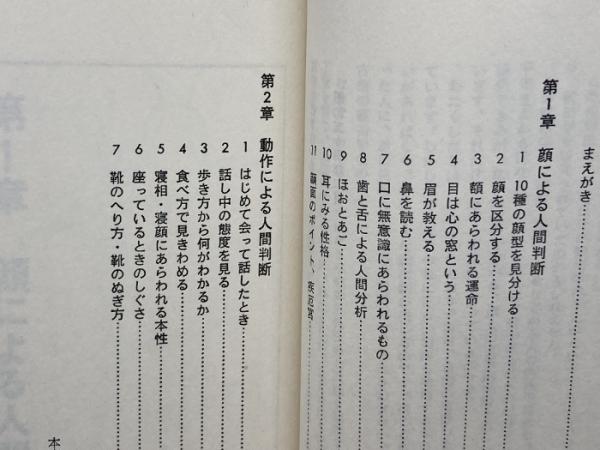 まえがき…………
第1章 顔による人間判断
1 10種の顔型を見分ける…………
2 顔を区分する…………
3 額にあらわれる運命…………
4 目は心の窓という…………
5 眉が教える…………
6 鼻を読む…………
7 口に無意識にあらわれるもの…………
8 歯と舌による人間分析…………
9 ほおとあご…………
10 耳にみる性格…………
11 顔面のポイント、疾厄宮…………
第2章 動作による人間判断
1 はじめて会って話したとき…………
2 話し中の態度を見る…………
3 歩き方から何がわかるか…………
4 食べ方で見きわめる…………
5 寝相・寝顔にあらわれる本性…………
6 座っているときのしぐさ…………
7 靴のへり方・靴のぬぎ方…………
本